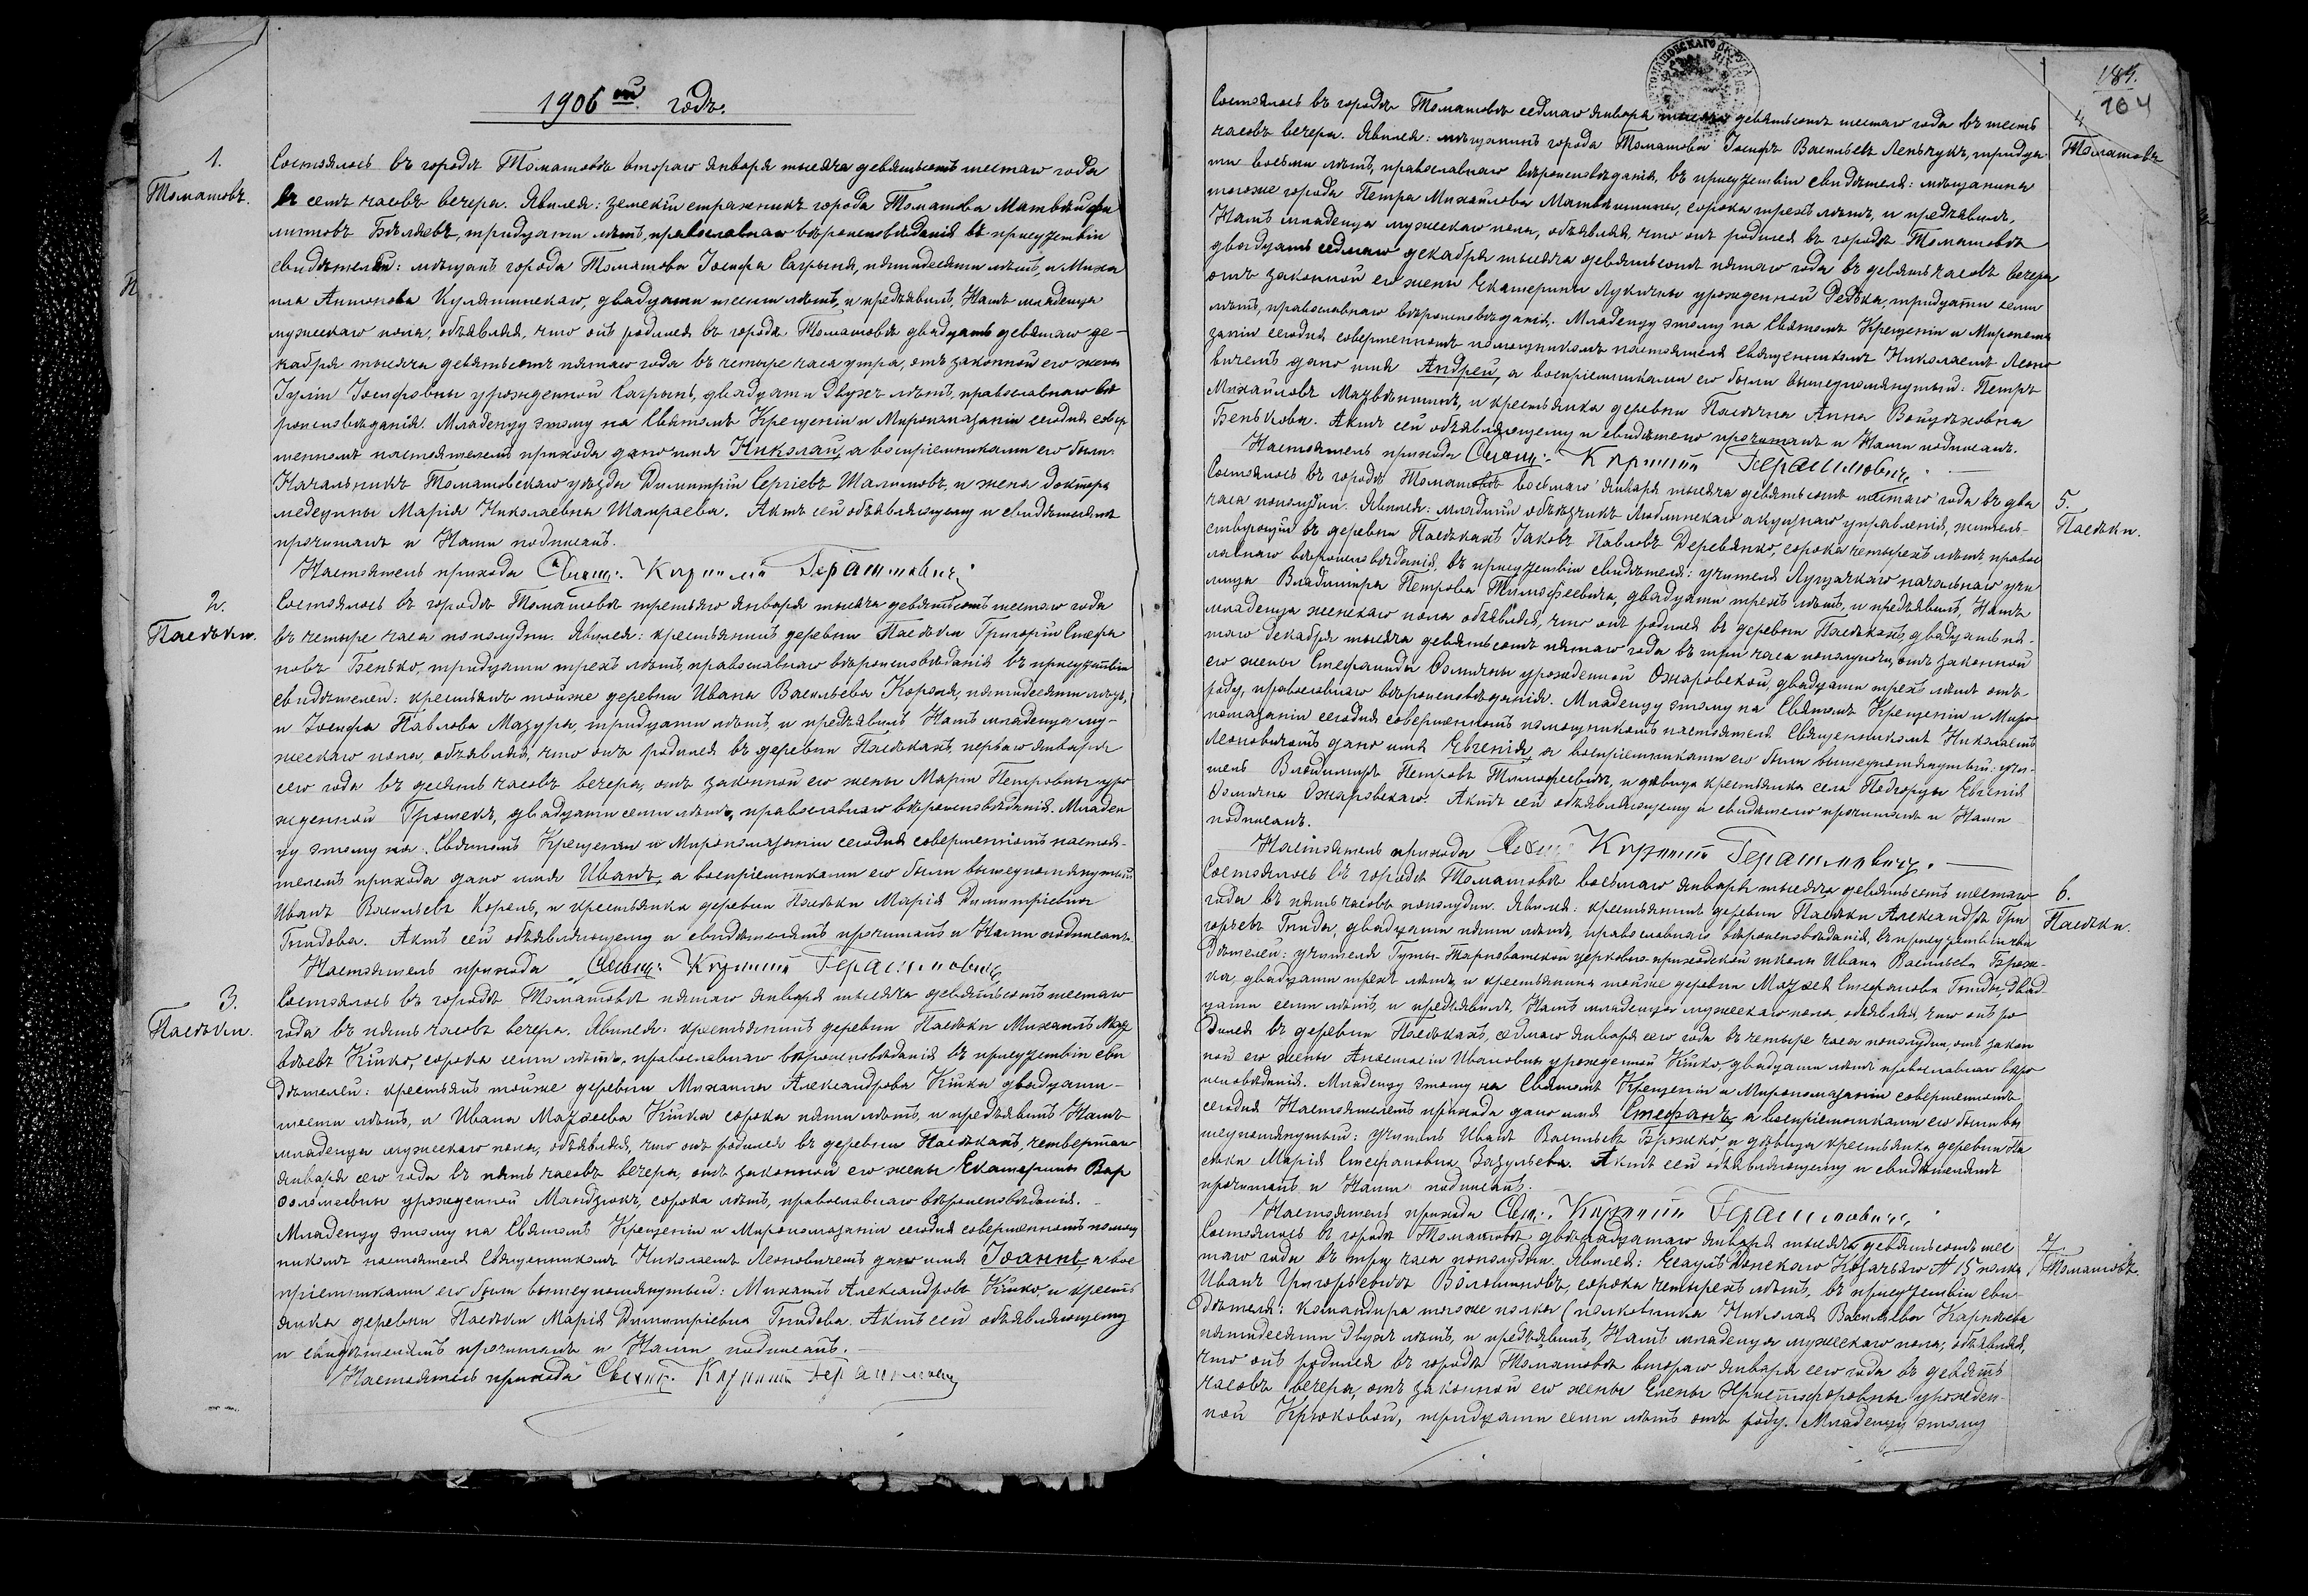 1906ый годъ.
1.
Томашовъ.
Состоялось въ городѣ Томашовѣ втораго января тысяча девятьсотъ шестаго года
въ семь часовъ вечера. Явился: земскій стражникъ города Томашова Матвѣй
Бѣляевъ, тридцати лѣтъ, православнаго вѣроисповѣданія въ присутствіи
свидѣтелей: мѣщанъ города Томашова Іосифа Сагрыня, пятидесяти лѣтъ, и Миха
ила Антонова Кулятинскаго, двадцати шести лѣтъ, и предъявилъ Намъ младенца
мужескаго пола, объявляя, что онъ родился въ городѣ Томашовѣ двадцать девятаго де-
кабря тысяча девятьсотъ пятаго года въ четыре часа утра, отъ законной его жены
Іуліи Іосифовны урожденной Сагрынь, двадцати двухъ лѣтъ, православнаго вѣ
роисповѣданія. Младенцу этому на Святомъ Крещеніи и Миропомазаніи сегодня совер
шенномъ настоятелемъ прихода дано имя Николай, а воспріемниками его были:
Начальникъ Томашовскаго уѣзда Димитрій Сергіевъ Шалимовъ, и жена доктора
медецины Марія Николаевна Шамраева. Актъ сей объявляющему и свидѣтелямъ
прочитанъ и Нами подписанъ.
Настоятель прихода Свящ. Кириллъ Герасимовичъ
2.
Пасѣки.
Состоялось въ городѣ Томашовѣ третьяго января тысяча девятьсотъ шестаго года
въ четыре часа пополудни. Явился: крестьянинъ деревни Пасѣки Григорій Стефа
новъ Бенько, тридцати трехъ лѣтъ, православнаго вѣроисповѣданія въ присутствіи
свидѣтелей: крестьянъ тойже деревни Ивана Васильева Короля, пятидесяти лѣтъ,
и Іосифа Павлова Мазура, тридцати лѣтъ, и предъявилъ Намъ младенца му-
жескаго пола, объявляя, что онъ родился въ деревни Пасѣкахъ, перваго января
сего года въ десять часовъ вечера, отъ законной его жены Маріи Петровны уро
жденной Грошекъ, двадцати семи лѣтъ, православнаго вѣроисповѣданія. Младен
цу этому на Святомъ Крещеніи и Миропомазаніи сегодня совершенномъ настоя-
телемъ прихода дано имя Иванъ, а воспріемниками его были вышеупомянутый
Иванъ Васильевъ Король, и крестьянка деревни Пасѣки Марія Димитріевна
Гнидова. Актъ сей объявляющему и свидѣтелямъ прочитанъ и Нами подписанъ.
Настоятель прихода Свящ: Кириллъ Герасимовичъ
3.
Пасѣки.
Состоялось въ городѣ Томашовѣ пятаго января тысяча девятьсотъ шестаго
года въ пять часовъ вечера. Явился: крестьянинъ деревни Пасѣки Михаилъ Мат
вѣевъ Кицко, сорока семи лѣтъ, православнаго вѣроисповѣданія въ присутствіи сви
дѣтелей: крестьянъ тойже деревни Михаила Александрова Кицка двадцати-
шести лѣтъ, и Ивана Матѳеева Кицка сорока пяти лѣтъ, и предъявилъ Намъ
младенца мужескаго пола, объявляя, что онъ родился въ деревни Пасѣкахъ, четвертаго
января сего года въ пять часовъ вечера, отъ законной его жены Екатерины Вар
ѳоломеевны урожденной Мандзюкъ, сорока лѣтъ, православнаго вѣроисповѣданія. -
Младенцу этому на Святомъ Крещеніи и Миропомазаніи сегодня совершенномъ помощ
никомъ настоятеля Священникомъ Николаемъ Леоновичемъ дано имя Іоаннъ, а вос
пріемниками его были вышеупомянутый: Михаилъ Александровъ Кицко, и кресть
янка деревни Пасѣки Марія Димитріевна Гнидова. Актъ сей объявляющему
и свидѣтелямъ прочитанъ и Нами подписанъ. -
Настоятель прихода Свящ. Кириллъ Герасимовичъ
184.
104
4
Томашовъ
Состоялось въ городѣ Томашовѣ седмаго января тысяча девятьсотъ шестаго года въ шесть
часовъ вечера. Явился: мѣщанинъ города Томашова Іосифъ Васильевъ Леньчукъ, тридца
ти восьми лѣтъ, православнаго вѣроисповѣданія, въ присутствіи свидѣтеля: мѣщанина
тогоже города Петра Михайлова Матвѣишина, сорока трехъ лѣтъ, и предъявилъ
Намъ младенца мужескаго пола, объявляя, что онъ родился въ городѣ Томашовѣ
двадцать седмаго декабря тысяча девятьсотъ пятаго года въ девять часовъ вечера
отъ законной его жены Екатерины Лукичны урожденной Федѣка, тридцати семи
лѣтъ, православнаго вѣроисповѣданія. Младенцу этому на Святомъ Крещеніи и Миропома
заніи сегодня совершенномъ помощникомъ настоятеля Священникомъ Николаемъ Леоно
вичемъ дано имя Андрей, а воспріемниками его были вышеупомянутый: Петръ
Михайловъ Матвѣишинъ, и крестьянка деревни Пасѣчна Анна Войцѣховна
Бенькова. Актъ сей объявляющему и свидѣтелю прочитанъ и Нами подписанъ.
Настоятель прихода Свящ: Кириллъ Герасимовичъ
5.
Пасѣки.
Состоялось въ городѣ Томашовѣ восьмаго января тысяча девятьсотъ шестаго года въ два
часа пополудни. Явился: младшій объѣздчикъ Люблинскаго акцизнаго управленія, житель-
ствующій въ деревни Пасѣкахъ Іаковъ Павловъ Деревянко, сорока четырехъ лѣтъ, правос
лавнаго вѣроисповѣданія, въ присутствіи свидѣтеля: учителя Лущачкаго начальнаго учи
лища Владиміра Петрова Тимофеевича, двадцати трехъ лѣтъ, и предъявилъ Намъ
младенца женскаго пола объявляя, что онъ родился въ деревни Пасѣкахъ, двадцать пя-
таго декабря тысяча девятьсотъ пятаго года въ три часа пополуночи, отъ законной
его жены Стефаниды Ѳомичны урожденной Ожаровской, двадцати трехъ лѣтъ отъ
роду, православнаго вѣроисповѣданія. Младенцу этому на Святомъ Крещеніи и Миро
помазаніи сегодня совершенномъ помощникомъ настоятеля Священникомъ Николаемъ
Леоновичемъ дано имя Евгенія, а воспріемниками его были вышеупомянутый: учи-
тель Владиміръ Петровъ Тимофеевичъ, и дѣвица крестьянка села Подгорцы Евгенія
Ѳомична Ожаровская. Актъ сей объявляющему и свидѣтелю прочитанъ и Нами
подписанъ.
Настоятель прихода Свящ. Кириллъ Герасимовичъ. -
6.
Пасѣки.
Состоялось въ городѣ Томашовѣ восьмаго января тысяча девятьсотъ шестаго
года въ пять часовъ пополудни. Явился: крестьянинъ деревни Пасѣки Александръ Гри
горьевъ Гнида, двадцати пяти лѣтъ, православнаго вѣроисповѣданія, въ присутствіи сви
дѣтелей: учителя Гуты-Тарноватской церковно-приходской школы Ивана Васильева Брож-
ка, двадцати трехъ лѣтъ, и крестьянина тойже деревни Матѳея Стефанова Гниды, двад
цати семи лѣтъ, и предъявилъ Намъ младенца мужескаго пола, объявляя, что онъ ро
дился въ деревни Пасѣкахъ, седмаго января сего года въ четыре часа пополудни, отъ закон
ной его жены Анастасіи Ивановны урожденной Кицко, двадцати лѣтъ православнаго вѣро
исповѣданія. Младенцу этому на Святомъ Крещеніи и Миропомазаніи совершенномъ
сегодня Настоятелемъ прихода дано имя Стефанъ, а воспріемниками его были вы
шеупомянутый: учитель Иванъ Васильевъ Брожко, и дѣвица крестьянка деревни Па
сѣки Марія Стефановна Зазульева. Актъ сей объявляющему и свидѣтелямъ
прочитанъ и Нами подписанъ.
Настоятель прихода Свящ. Кириллъ Герасимовичъ
7.
Томашовъ.
Состоялось въ городѣ Томашовѣ двѣнадцатаго января тысяча девятьсотъ шес
таго года въ три часа пополудни. Явился: Есаулъ Донскаго Козачьяго № 15 полка
Иванъ Григорьевичъ Волошиновъ, сорока четырехъ лѣтъ, въ присутствіи сви-
дѣтеля: командира тогоже полка (полковника Николая Васильева Карпѣева
пятидесяти двухъ лѣтъ, и предъявилъ Намъ младенца мужескаго пола, объявляя,
что онъ родился въ городѣ Томашовѣ втораго января сего года въ девять
часовъ вечера, отъ законной его жены Елены Христофоровны урожден-
ной Крюковой, тридцати семи лѣтъ отъ роду. Младенцу этому